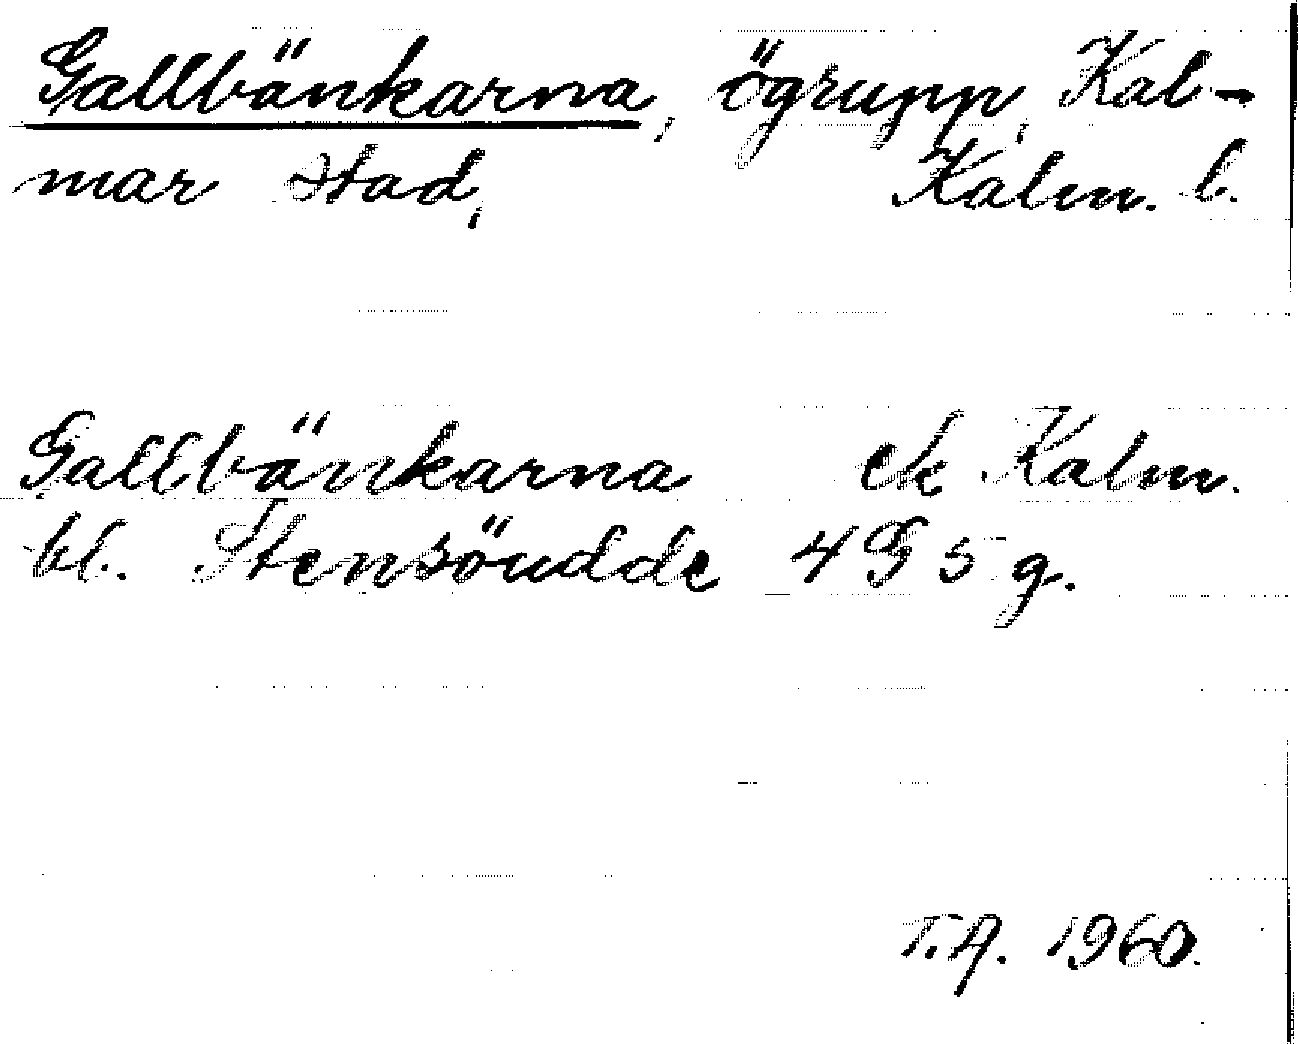 Gallbänkarna, ögrupp, Kal-
mar stad, Kalm. l.
Gallbänkarna ek Kalm.
bl. Stensöudde 4 G 5 g.
T.A. 1960.